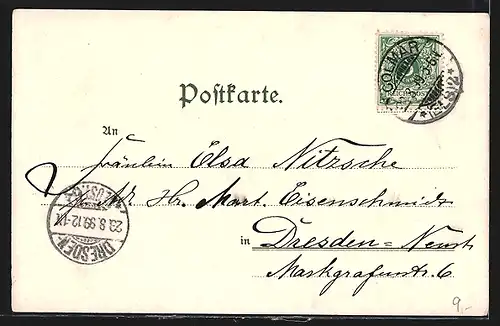 COLMAR
Postkarte.
An
Fräulein Elsa Nitzsche
Hr. Mart. Eisenschmidt
in Dresden=Neust.
Markgrafenstr. 6
DRESDEN-
29.8.99.12-1
9,-